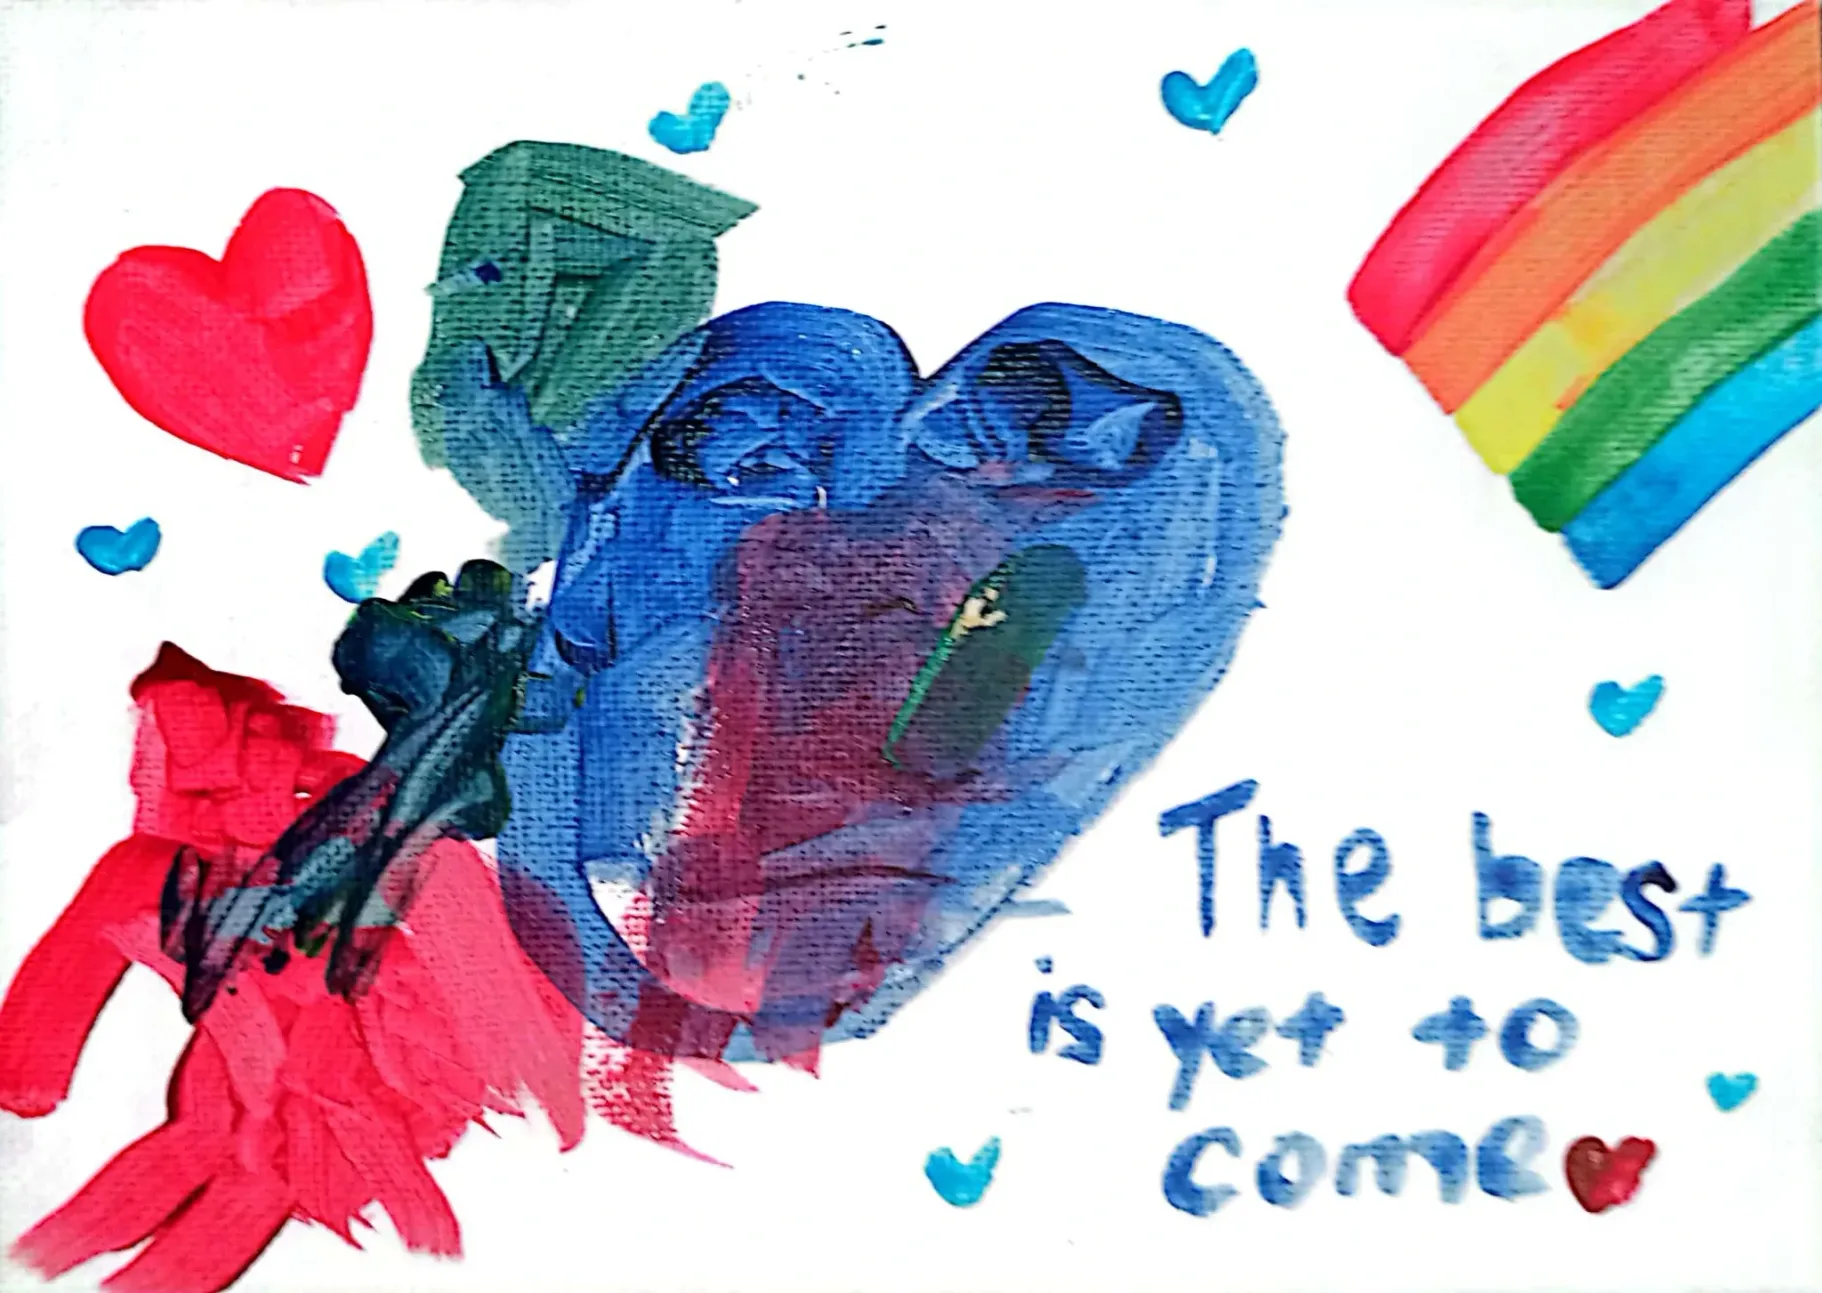 The best
is yet to
come